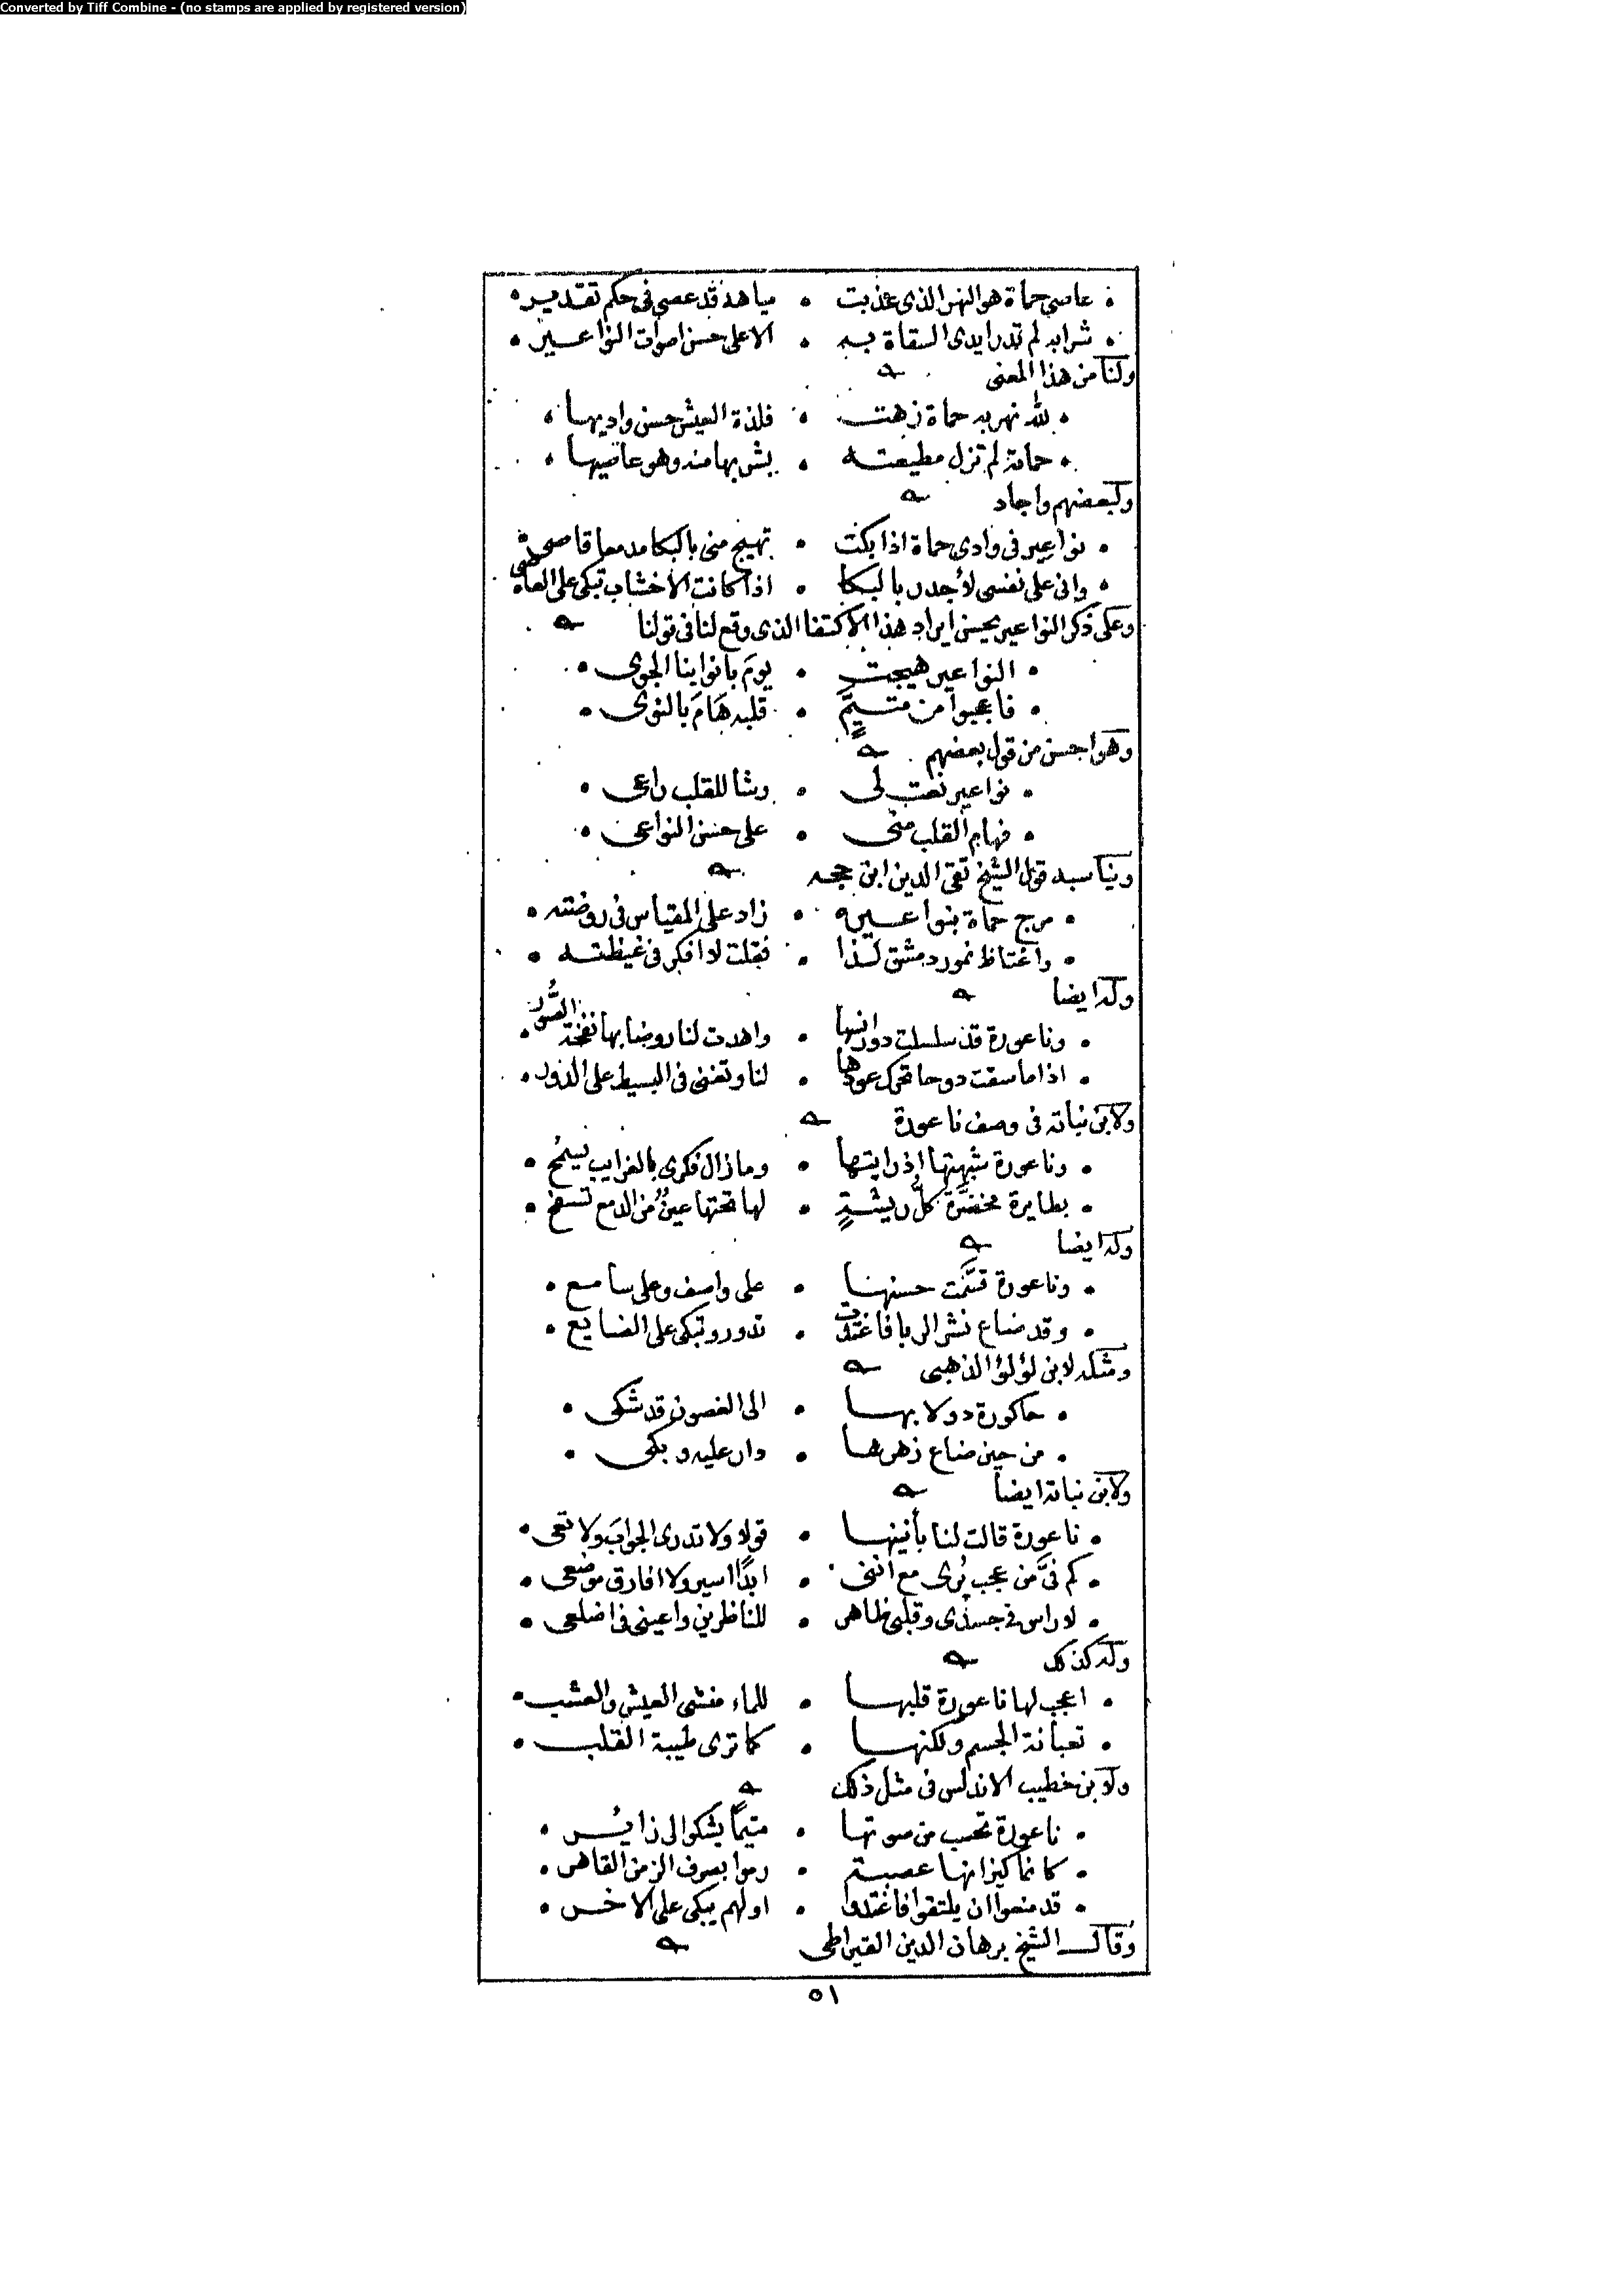 Converted by Tiff Combine - (no stamps are applied by registered version)
عاصي حماة هو النهر الذى عذبت • مياهه قد عصى فى حكم تقدير
شرابه لم تدر ايدى السقاة به • الا على حسن اصوات النواعير
ولنا من هذا المعنى
لله نهر به حماة زهت • فلذة العيش حسن واديها
حماة لم تزل مطيعته • بشربها منه وهو عاصيها
ولبعضهم واجاد
نواعير فى وادى حماة اذا بكت • تهيج منى بالبكا مدمعا قاصى
وانى على نفسى لأجدر بالبكا • اذا كانت الأخشاب تبكى على العاصى
وعلى ذكر النواعير يحسن ايراد هذا الاكتفا الذى وقع لنا فى قولنا
النواعير هيجت • يومَ بانوا بنا الجوى
فاعجبوا من متيَّمٍ • قلبه هَامَ بالنوى
وهو احسن من قول بعضهم
نواعير نعت لى • رشا للقلب راعى
فهام القلب منى • على حسن النواعى
ويناسبه قول الشيخ تقى الدين ابن حجه
مرج حماة بنواعيره • زاد على المقياس فى روضته
واغتاظ نمرود دمشق لذا • فقلت لا افكر فى غيظته
وله ايضا
وناعورة قد سلسلت دورانها • واهدت لنا روضا بها نفخة الصُّور
اذا ما سقت دوحا تحرك عودها • لنا وتغنى فى البسيط على الدور
ولابن نباته فى وصف ناعورة
وناعورة شبهتها اذ رايتها • وما زال فكرى بالغرايب يسمُح
بطايرة مخضرَّة كلَّ ريشةٍ • لها تحتها عينٌ من الدمع تسفح
وله ايضا
وناعورة قسَّمت حسنها • على واصف وعلى سامع
وقد ضاع نشر الربا فاغتدت • تدور وتبكى على الضايع
ومثله لابن لؤلؤ الذهبى
حاكورة دولابها • الى الغصون قد شكى
من حين ضاع زهرها • دار عليه وبكى
ولابن نباتة ايضا
ناعورة قالت لنا بأنينها • قولا ولا تدرى الجوابَ ولا تعى
كم فىَّ من عجب يُرى مع اننى • ابدًا اسير ولا افارق موضعى
لا راس فى جسدى وقلبى ظاهر • للناظرين واعينى فى اضلعى
وله كذلك
اعجب لها ناعورة قلبها • للماء منشى العيش والعشب
تعبانة الجسم ولكنها • كما ترى طيبة القلب
ولابن خطيب الاندلس فى مثل ذلك
ناعورة تحسب من صوتها • متيمًا يشكو الى زائر
كانما كيزانها عصبة • رموا بصرف الزمن القاهر
قد منعوا ان يلتقوا فاغتدوا • اولهم يبكى على الاخر
وقال الشيخ برهان الدين القيراطى
٥١